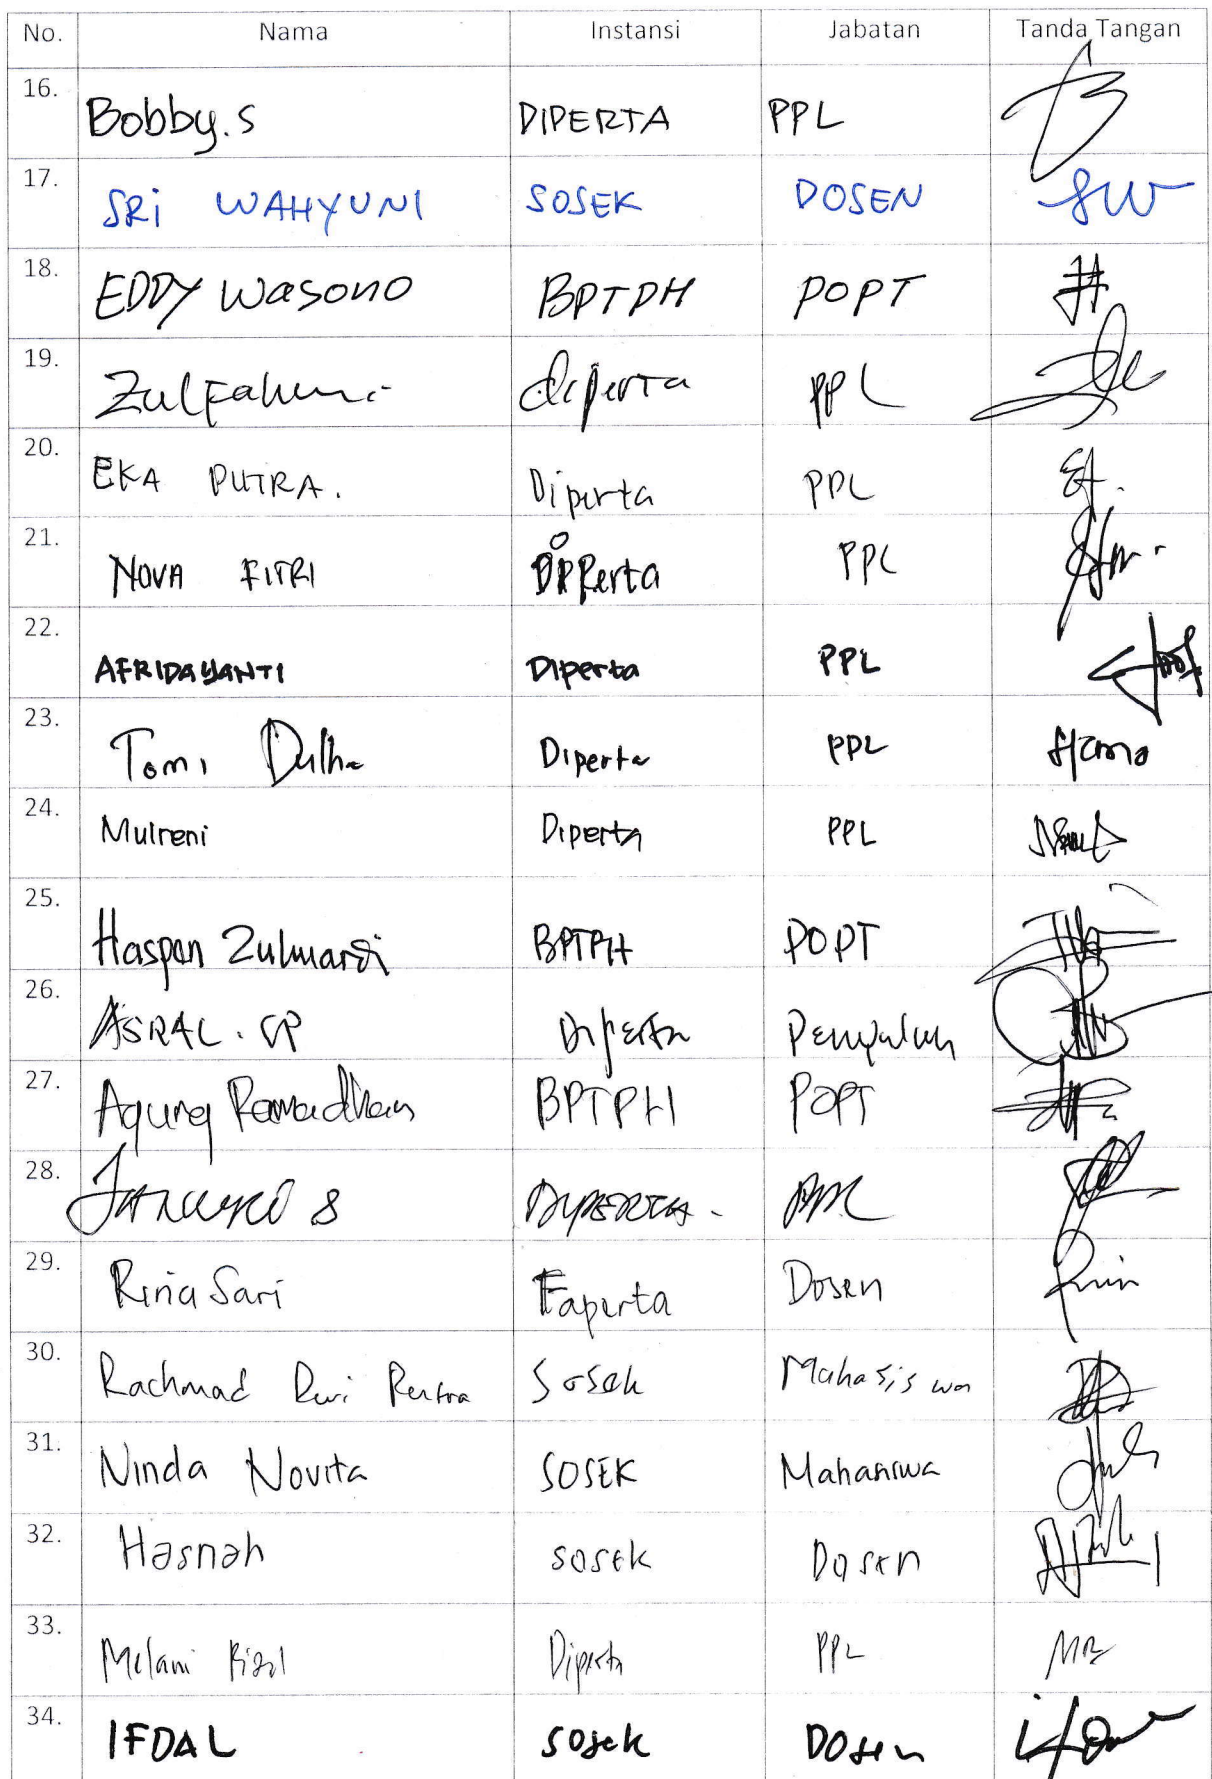 No. Nama Instansi Jabatan Tanda Tangan
16. Bobby.S DIPERTA PPL
17. SRi WAHYUNI SOSEK DOSEN SW
18. EDDY Wasono BPTPH POPT
19. Zulfahmi diperta PPL
20. EKA PUTRA. Diperta PPL
21. NOVA FITRI Diperta PPL
22. AFRIDAYANTI Diperta PPL
23. Tomi Diperta PPL
24. Mulreni Diperta PPL
25. Haspan Zulmardi BPTPH POPT
26. ASRAL. SP Diperta Penyuluh
27. Agung Ramadhan BPTPH POPT
28. S DIPERTA. PPL
29. Rina Sari Faperta Dosen
30. Rachmad Sosek Mahasiswa
31. Ninda Novita SOSEK Mahasiswa
32. Hasnah sosek Dosen
33. Melani Diperta PPL
34. IFDAL sosek Dosen